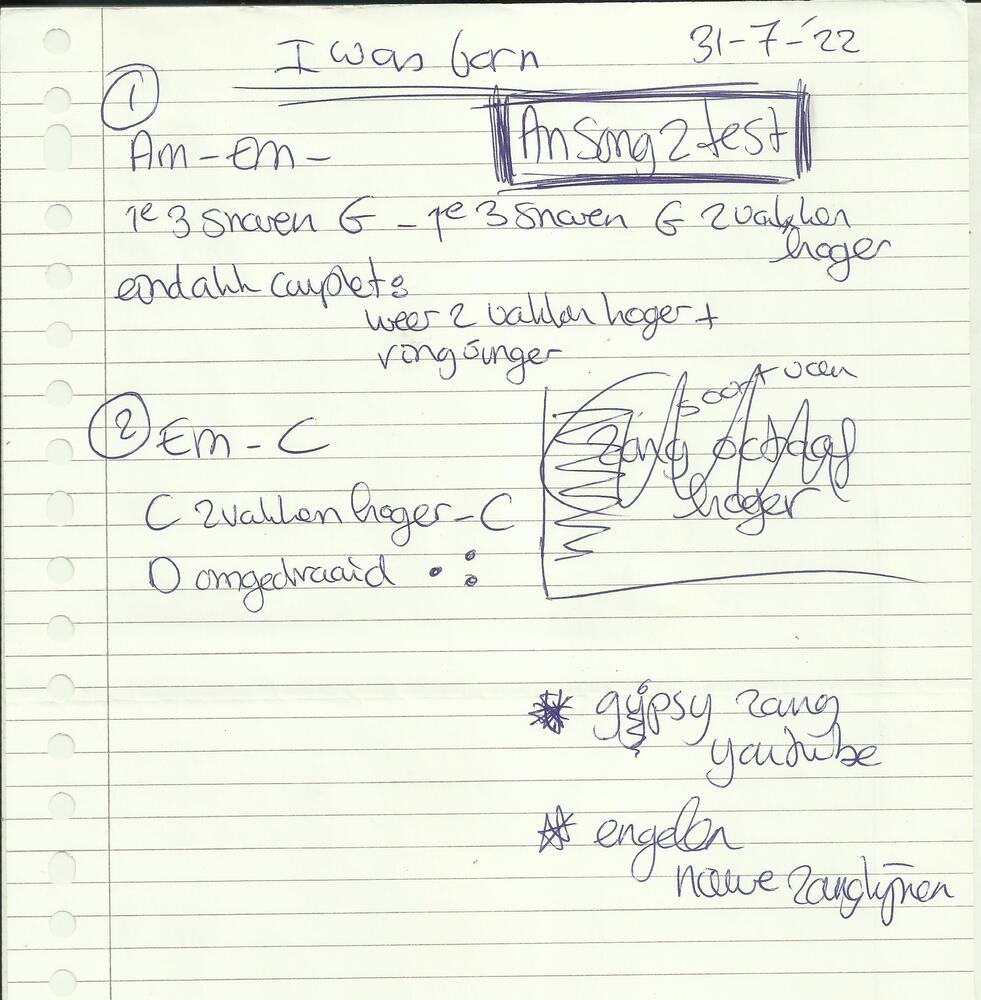 I was born
31-7-'22
1
Am - Em -
An Song 2 test
1e 3 snaren G - 1e 3 snaren G 2 vakken
hoger
eindakk couplet:
weer 2 vakken hoger +
ringvinger
2 Em - C
soort van
zang octaaf
hoger
C 2 vakken hoger - C
D omgedraaid
* gypsy zang
youtube
* engelen
nieuwe zanglijnen